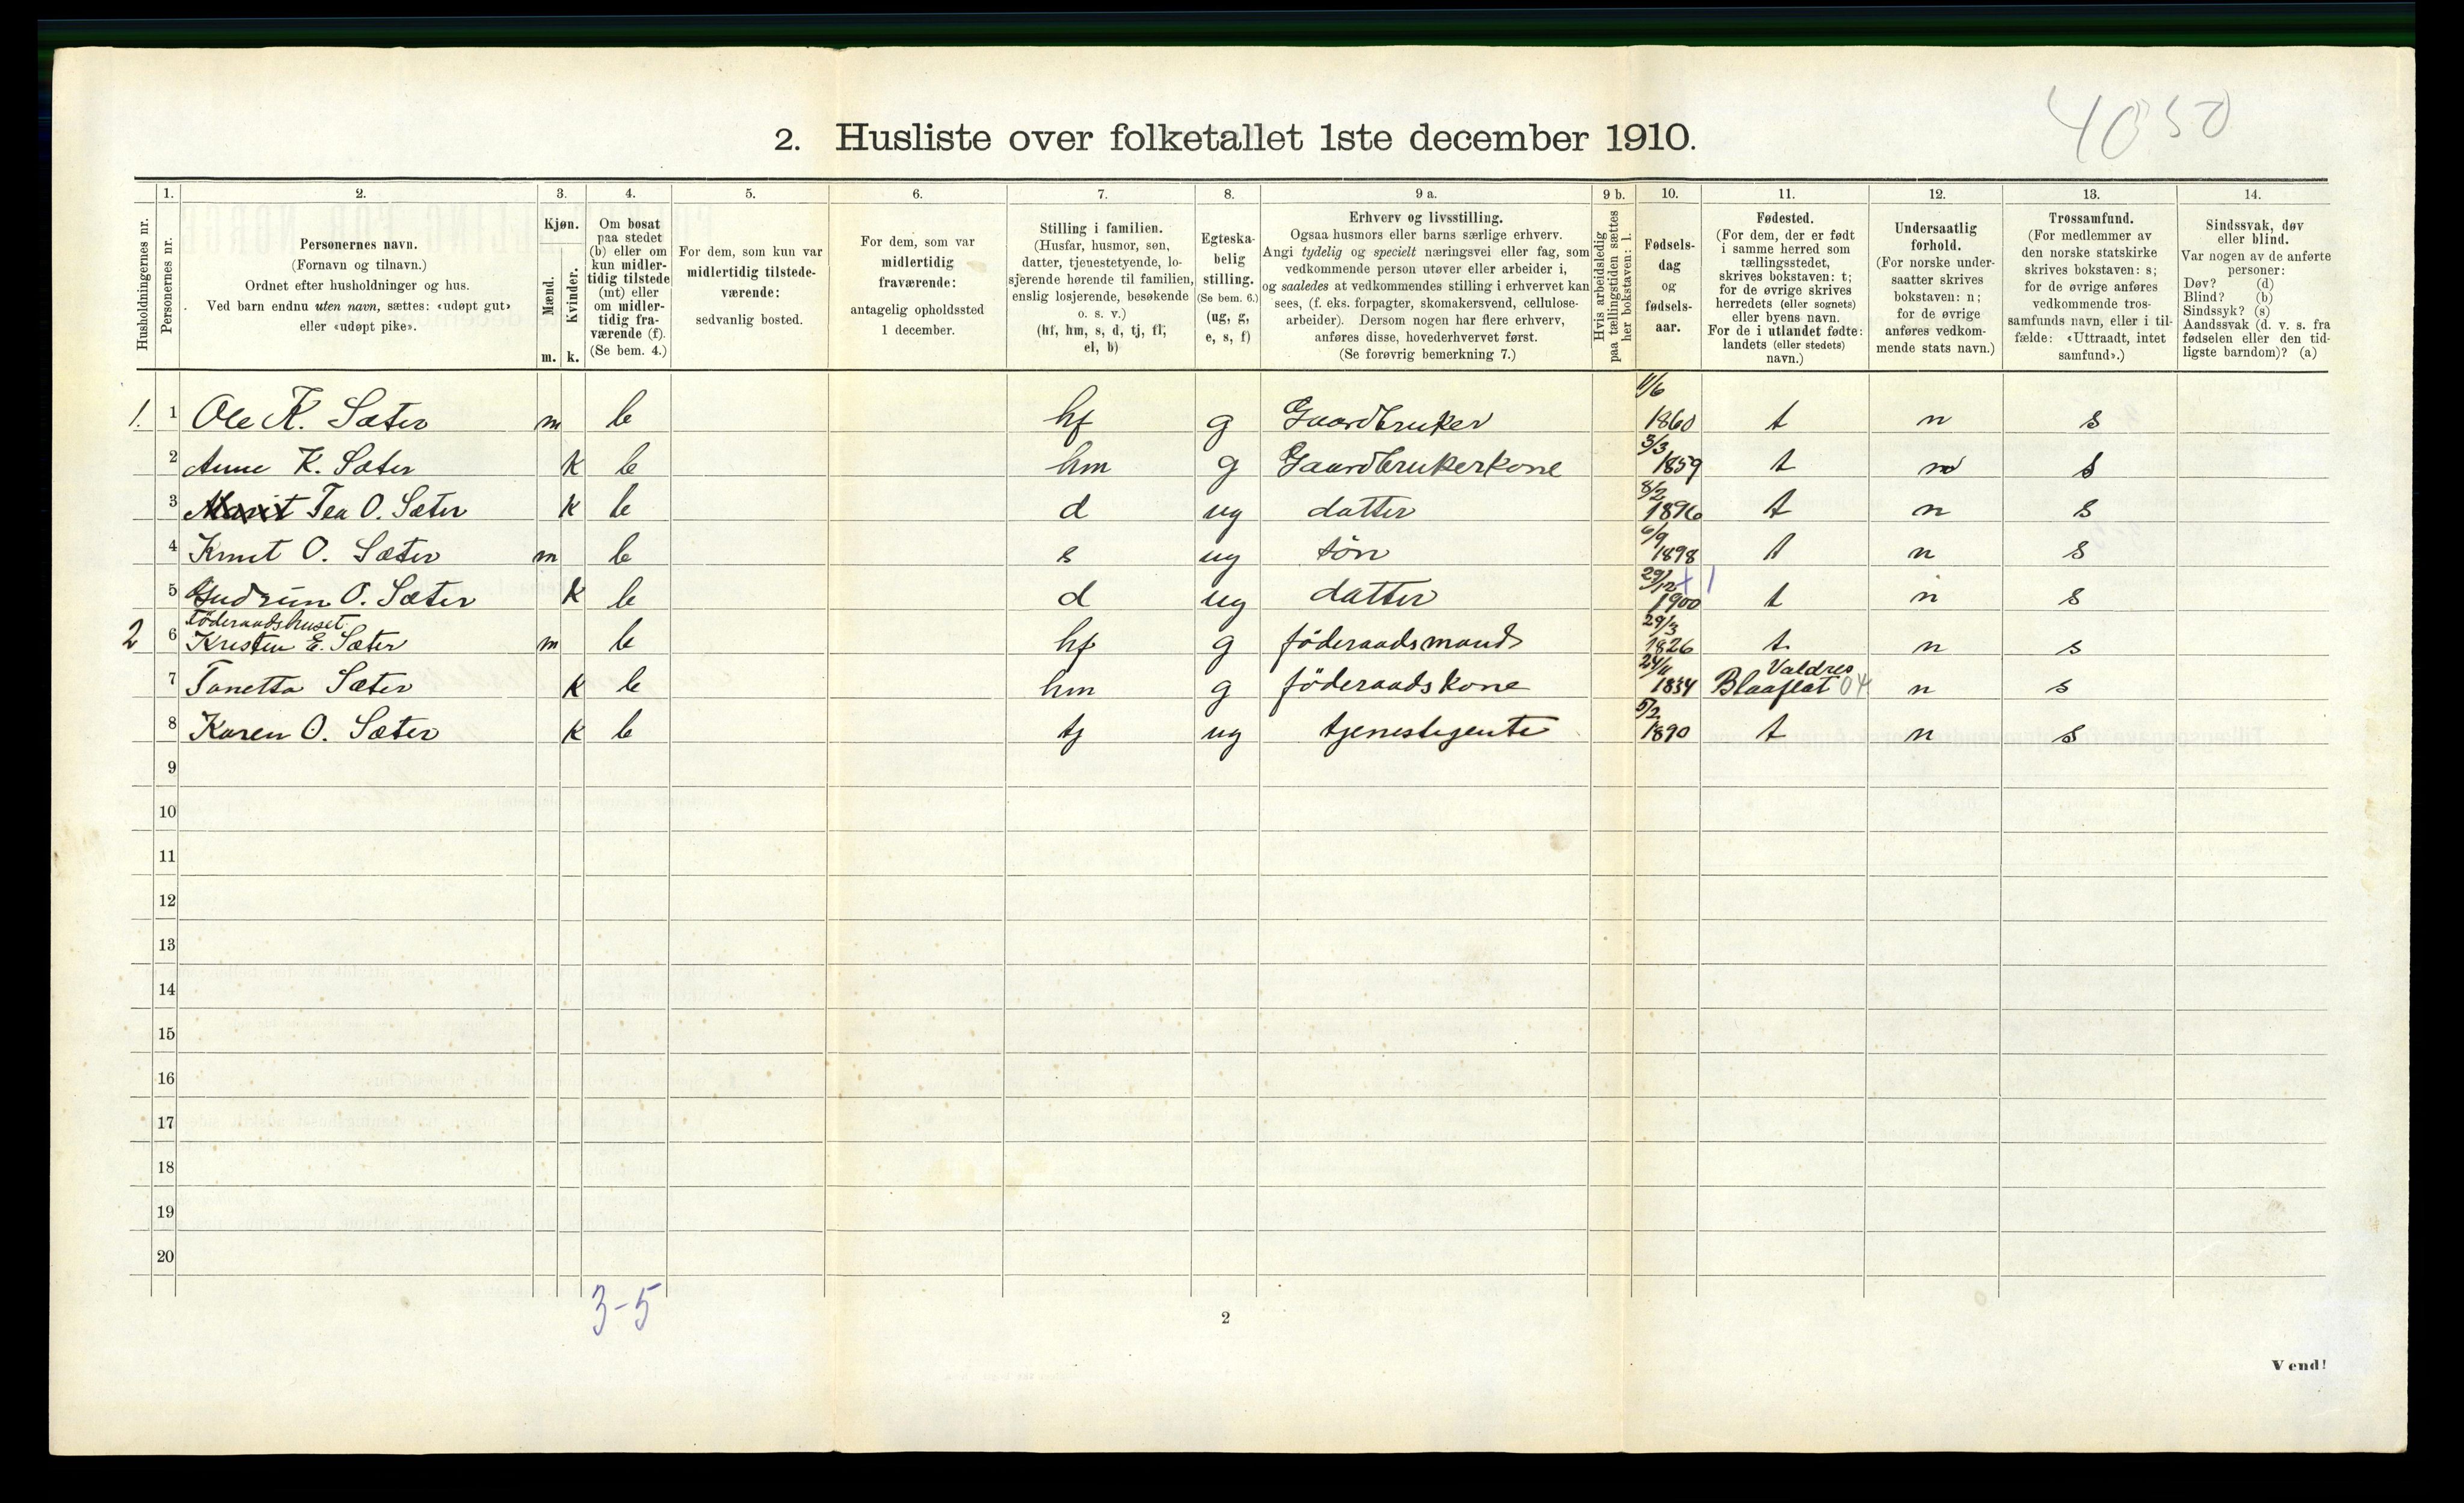 4050
2. Husliste over folketallet 1ste december 1910.
Husholdningernes nr.
1.
Personernes nr.
2.
Personernes navn.
(Fornavn og tilnavn.)
Ordnet efter husholdninger og hus.
Ved barn endnu uten navn, sættes: «udøpt gut»
eller «udøpt pike».
3.
Kjøn.
Mænd.
Kvinder.
m. k.
4.
Om bosat
paa stedet
(b) eller om
kun midler-
tidig tilstede
(mt) eller
om midler-
tidig fra-
værende (f).
(Se bem. 4.)
5.
For dem, som kun var
midlertidig tilstede-
værende:
sedvanlig bosted.
6.
For dem, som var
midlertidig
fraværende:
antagelig opholdssted
1 december.
7.
Stilling i familien.
(Husfar, husmor, søn,
datter, tjenestetyende, lo-
sjerende hørende til familien,
enslig losjerende, besøkende
o. s. v.)
(hf, hm, s, d, tj, fl,
el, b)
8.
Egteska-
belig
stilling.
(Se bem. 6.)
(ug, g,
e, s, f)
9 a.
Erhverv og livsstilling.
Ogsaa husmors eller barns særlige erhverv.
Angi tydelig og specielt næringsvei eller fag, som
vedkommende person utøver eller arbeider i,
og saaledes at vedkommendes stilling i erhvervet kan
sees, (f. eks. forpagter, skomakersvend, cellulose-
arbeider). Dersom nogen har flere erhverv,
anføres disse, hovederhvervet først.
(Se forøvrig bemerkning 7.)
9 b.
Hvis arbeidsledig
paa tællingstiden sættes
her bokstaven: l.
10.
Fødsels-
dag
og
fødsels-
aar.
11.
Fødested.
(For dem, der er født
i samme herred som
tællingsstedet,
skrives bokstaven: t;
for de øvrige skrives
herredets (eller sognets)
eller byens navn.
For de i utlandet fødte:
landets (eller stedets)
navn.)
12.
Undersaatlig
forhold.
(For norske under-
saatter skrives
bokstaven: n;
for de øvrige
anføres vedkom-
mende stats navn.)
13.
Trossamfund.
(For medlemmer av
den norske statskirke
skrives bokstaven: s;
for de øvrige anføres
vedkommende tros-
samfunds navn, eller i til-
fælde: «Uttraadt, intet
samfund».)
14.
Sindssvak, døv
eller blind.
Var nogen av de anførte
personer:
Døv? (d)
Blind? (b)
Sindssyk? (s)
Aandssvak (d. v. s. fra
fødselen eller den tid-
ligste barndom)? (a)
1. 1 Ole K. Sæter m b hf g Gaardbruker 11/6 1860 t n s
2 Anne K. Sæter k b hm g Gaardbrukerkone 3/3 1859 t n s
3 Marit Tea O. Sæter k b d ug datter 8/2 1896 t n s
4 Knut O. Sæter m b s ug søn 6/9 1898 t n s
5 Gudrun O. Sæter k b d ug datter 29/12 1900 t n s
föderaadshuset
2 6 Kristen E. Sæter m b hf g föderaadsmand 29/3 1826 t n s
7 Tonetta Sæter k b hm g föderaadskone 24/11 1834 Valdres Blaaflat 04 n s
8 Karen O. Sæter k b tj ug tjenestejente 5/2 1890 t n s
9
10
11
12
13
14
15
16
17
18
19
20
3-5
2
Vend!